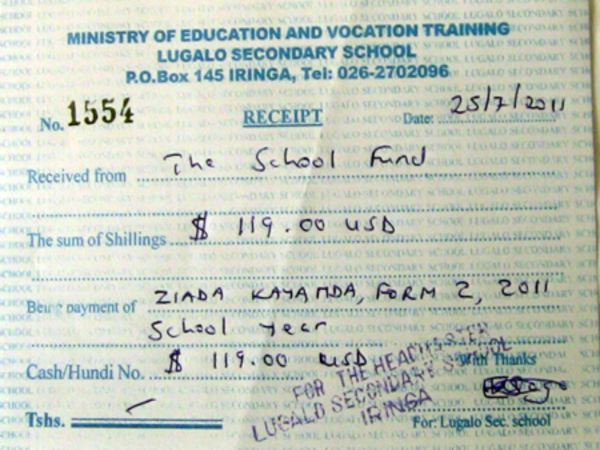 MINISTRY OF EDUCATION AND VOCATION TRAINING
LUGALO SECONDARY SCHOOL
P.O.Box 145 IRINGA, Tel: 026-2702096
No. 1554 RECEIPT Date: 25/7/2011
Received from The School Fund
The sum of Shillings $ 119.00 USD
Being payment of ZIADA KAYAMDA, FORM 2, 2011
School year
Cash/Hundi No. $ 119.00 USD With Thanks
FOR THE HEADMASTER
LUGALO SECONDARY SCHOOL
IRINGA
Tshs. For: Lugalo Sec. school